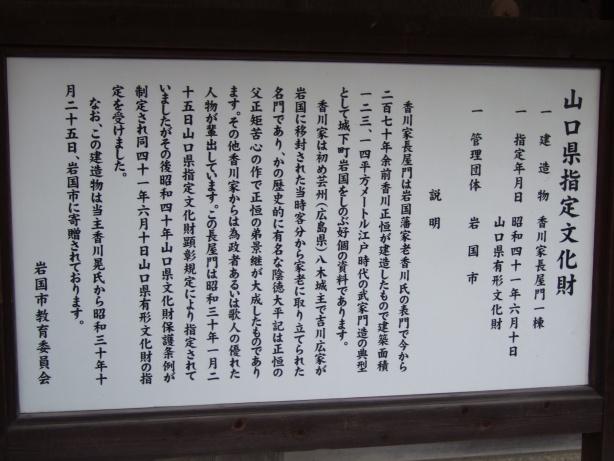 山口県指定文化財
一 建造物 香川家長屋門一棟
一 指定年月日 昭和四十一年六月十日
山口県有形文化財
一 管理団体 岩国市
説明
香川家長屋門は岩国藩家老香川氏の表門で今から
二百七十年余前香川正恒が建造したもので建築面積
一二三、一四平方メートル江戸時代の武家門造の典型
として城下町岩国をしのぶ好個の資料であります。
香川家は初め芸州(広島県)八木城主で吉川広家が
岩国に移封された当時客分から家老に取り立てられた
名門であり、かの歴史的に有名な陰徳太平記は正恒の
父正矩苦心の作で正恒の弟景継が大成したものであり
ます。その他香川家からは為政者あるいは歌人の優れた
人物が輩出しています。この長屋門は昭和三十年一月二
十五日山口県指定文化財顕彰規定により指定されて
いましたがその後昭和四十年山口県文化財保護条例が
制定され同四十一年六月十日山口県有形文化財の指
定を受けました。
なお、この建造物は当主香川晃氏から昭和三十年十
月二十五日、岩国市に寄贈されております。
岩国市教育委員会